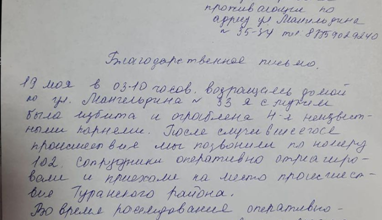 проживающей по
адресу ул Мангильдина
№ 35-84 тел 87759029840
Благодарственное письмо.
19 мая в 03-10 часов, возвращаясь домой
по ул. Мангельдина № 33 я с мужем
была избита и ограблена 4-я неизвест-
ными парнями. После случившегося
происшествия мы позвонили по номеру
102. Сотрудники оперативно отреагиро-
вали и приехали на место происшест-
вия Туранского района.
Во время расследования оперативно-